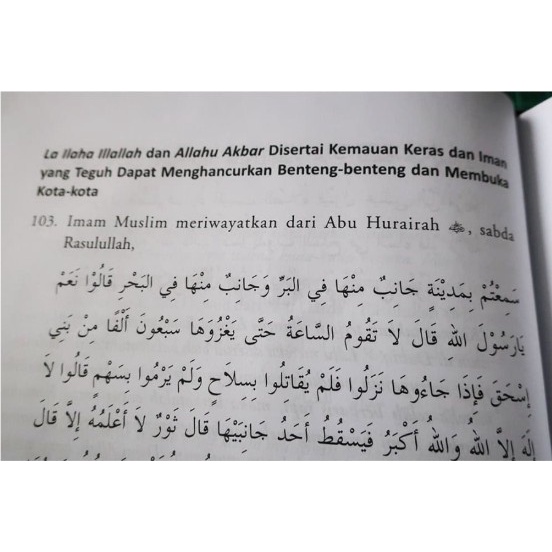 La Ilaha Illallah dan Allahu Akbar Disertai Kemauan Keras dan Iman
yang Teguh Dapat Menghancurkan Benteng-benteng dan Membuka
Kota-kota
103. Imam Muslim meriwayatkan dari Abu Hurairah ﷺ, sabda
Rasulullah,
سَمِعْتُمْ بِمَدِيْنَةٍ جَانِبٌ مِنْهَا فِي البَرِّ وَجَانِبٌ مِنْهَا فِي البَحْرِ قَالُوْا نَعَمْ
يَارَسُوْلَ اللهِ قَالَ لاَ تَقُومُ السَّاعَةُ حَتَّى يَغْزُوَهَا سَبْعُونَ أَلْفًا مِنْ بَنِي
إِسْحَقَ فَإِذَا جَاءُوهَا نَزَلُوا فَلَمْ يُقَاتِلُوا بِسِلاَحٍ وَلَمْ يَرْمُوا بِسَهْمٍ قَالُوا لاَ
إِلَهَ إِلاَّ اللهُ وَاللهُ أَكْبَرُ فَيَسْقُطُ أَحَدُ جَانِبَيْهَا قَالَ ثَوْرٌ لاَ أَعْلَمُهُ إِلاَّ قَالَ